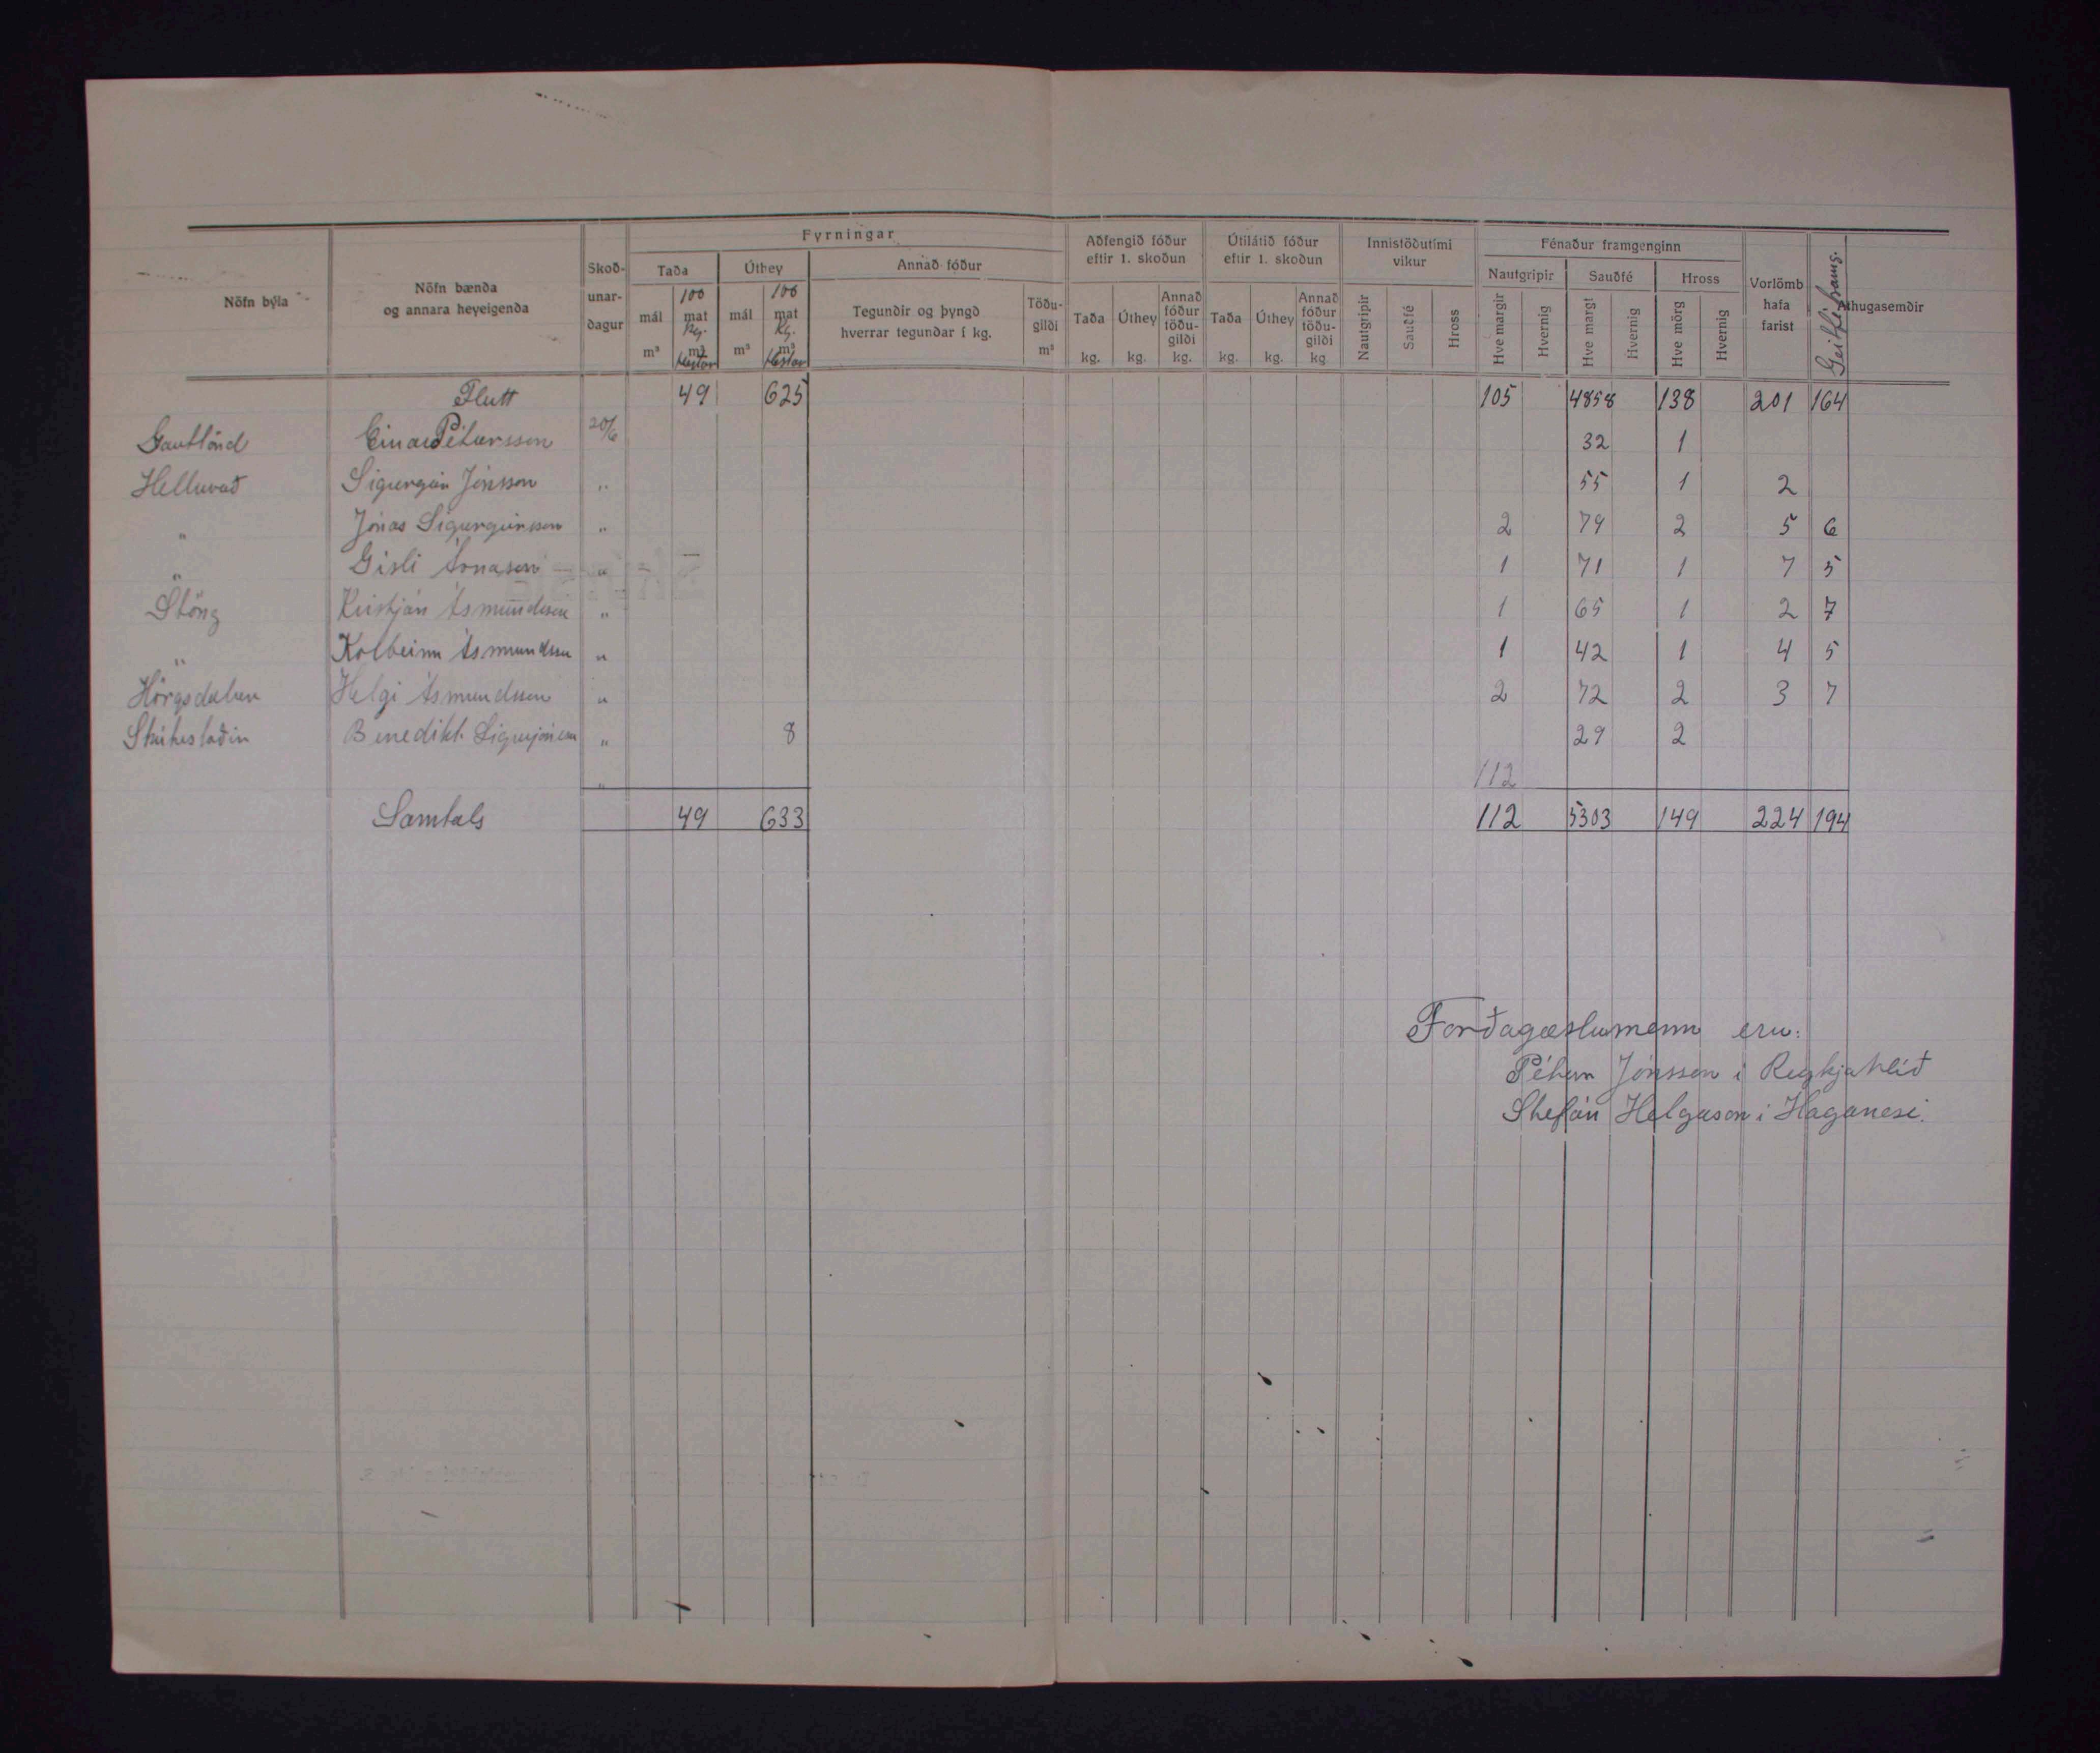 Fyrningar
Aðfengið fóður eftir 1. skoðun
Útilátið fóður eftir 1. skoðun
Innistöðutími vikur
Fénaður framgenginn
Nöfn býla
Nöfn bænda og annara heyeigenda
Skoð-unar-dagur
Taða
Úthey
Annað fóður
Nautgripir
Sauðfé
Hross
Vorlömb hafa farist
Geitfé framg.
Athugasemdir
mál m³
100 mat Kg. m³ Hestar
mál m³
100 mat Kg. m³ Hestar
Tegundir og þyngd hverrar tegundar í kg.
Töðu-gildi m³
Taða kg.
Úthey kg.
Annað fóður töðu-gildi kg.
Taða kg.
Úthey kg.
Annað fóður töðu-gildi kg
Nautgripir
Sauðfé
Hross
Hve margir
Hvernig
Hve margt
Hvernig
Hve mörg
Hvernig
Flutt 49 625 105 4858 138 201 164
Gautlönd Einar Pétursson 20/6 32 1
Helluvað Sigurgeir Jónsson " 55 1 2
" Jónas Sigurgeirsson " 2 79 2 5 6
" Gísli Árnason " 1 71 1 7 5
Stöng Kristján Ásmundsson " 1 65 1 2 7
" Kolbeinn Ásmundsson " 1 42 1 4 5
Hörgsdalur Helgi Ásmundsson " 2 72 2 3 7
Skútustaðir Benedikt Sigurjónsson " 8 29 2
" 112
Samtals 49 633 112 5303 149 224 194
Forðagæslumenn eru:
Pétur Jónsson í Reykjahlíð
Stefán Helgason í Haganesi.